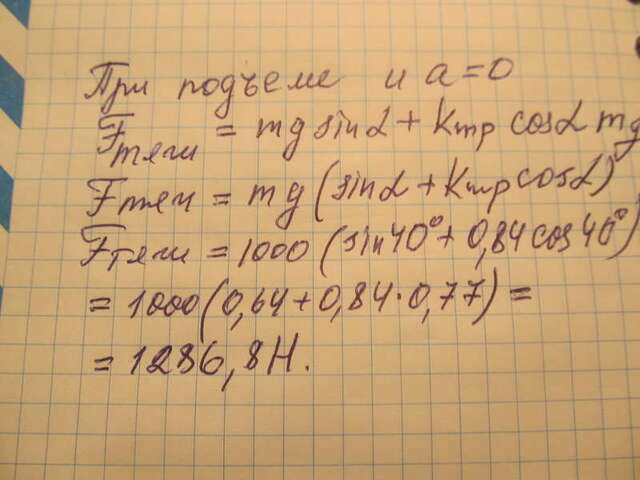 При подъеме и a=0
Fтяги = mg sinα + kтр cosα mg
Fтяги = mg (sinα + kтр cosα)
Fтяги = 1000 (sin 40° + 0,84 cos 40°)
= 1000 (0,64 + 0,84·0,77) =
= 1286,8 Н.